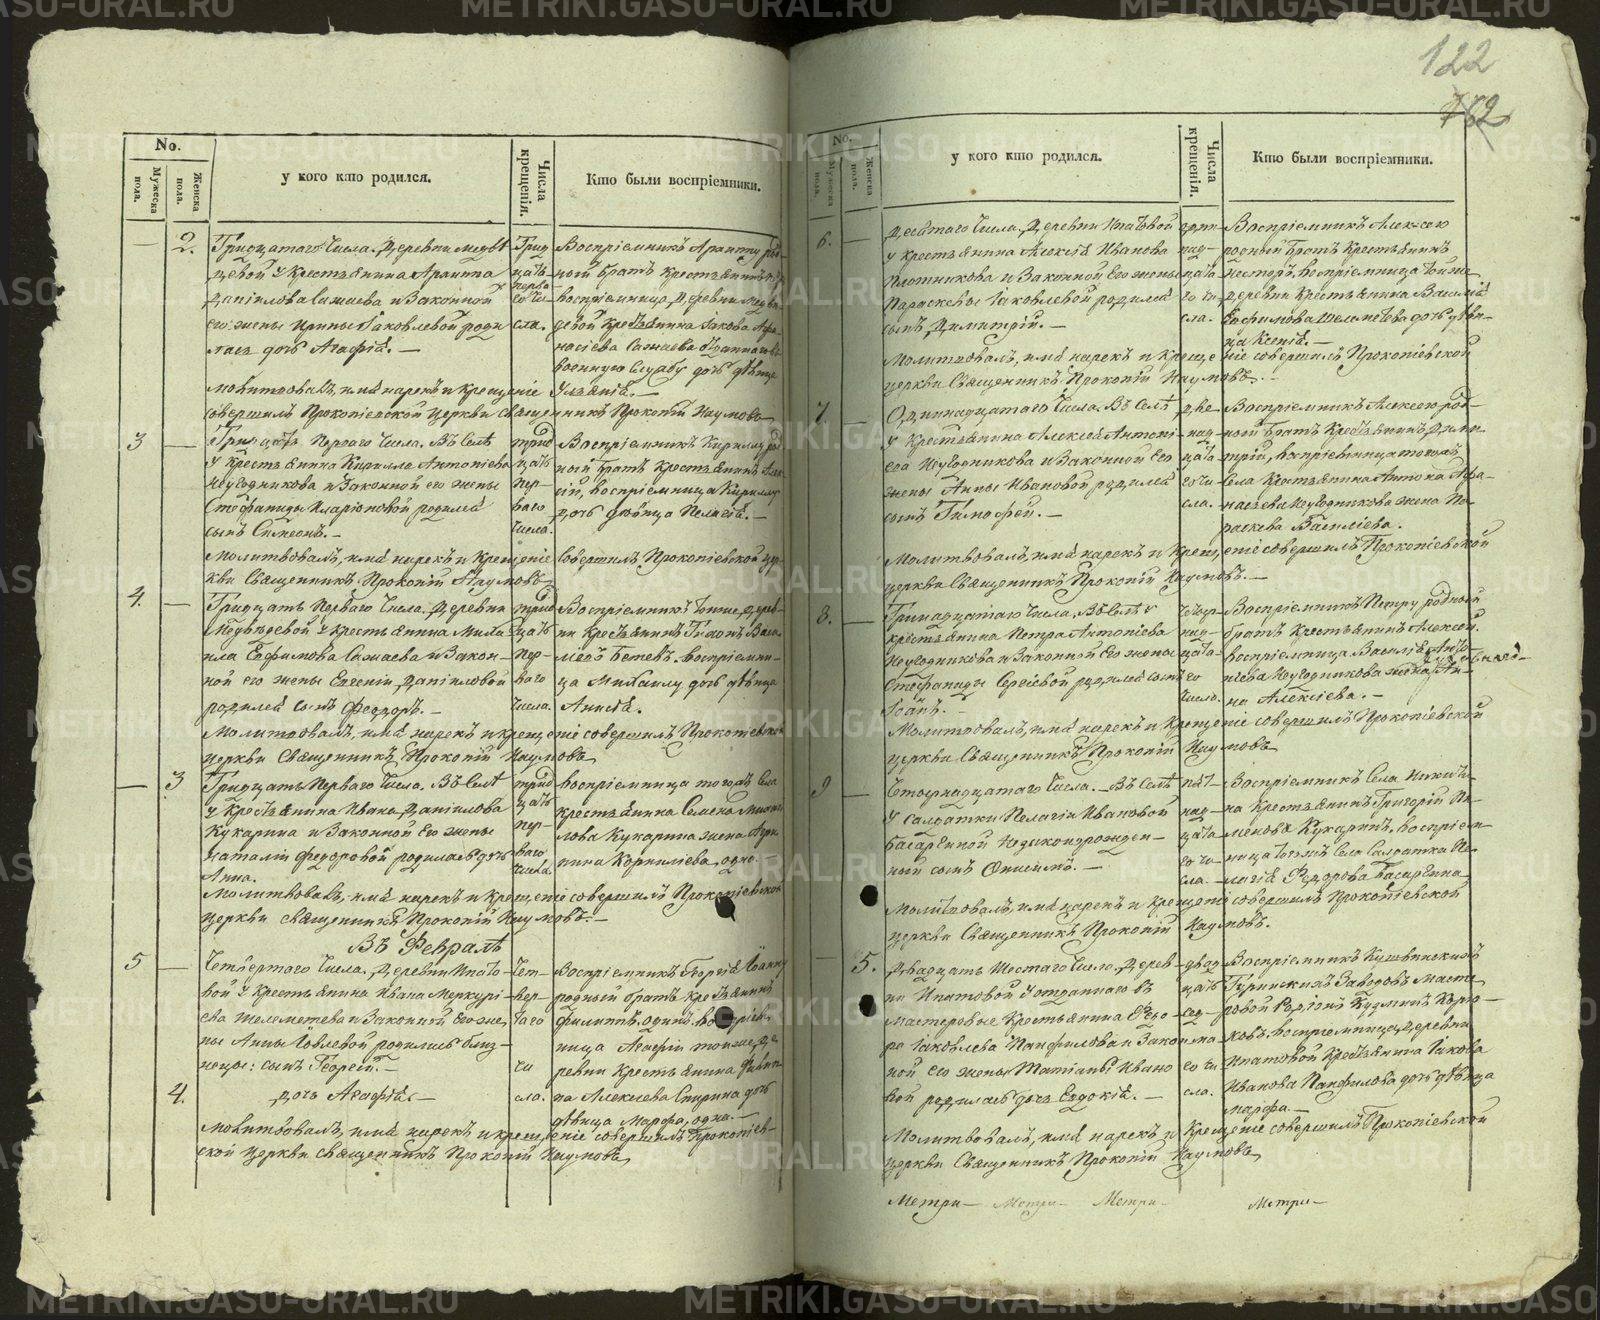 122
762
No.
Мужеска пола.
Женска пола.
у кого кто родился.
Числа крещенія.
Кто были воспріемники.
2.
Тридцатаго Числа. Деревни Медвѣ
девой у Крестьянина
Даніилова Сажаева и Законной
его жены Ирины Іаковлевой роди
лась дочь Агафія. —
Трид
цать
перва
го чи-
сла.
Воспріемникъ
ной братъ Крестьянинъ
воспріемница, Деревни Медвѣ
девой Крестьянина Іакова Афа
насіева Сажаева отданнаго въ
военную службу дочь дѣвица
Молитвовалъ, имя нарекъ и крещеніе
совершилъ Прокопіевской церкви Священникъ Прокопій Наумовъ
3
Тридцать Перваго Числа. Въ Селѣ
у Крестьянина Кирилла Антоніева
Неугодникова и Законной его жены
Стефаниды Иларіоновой родился
сынъ Симеонъ. —
трид
цать
пер-
ваго
Числа.
Воспріемникъ Кириллу род
ной братъ Крестьянинъ Алек
сій, воспріемница Кириллу
дочь дѣвица Пелагія. —
Молитвовалъ, имя нарекъ и Крещеніе Совершилъ Прокопіевской цер-
кви Священникъ Прокопій Наумовъ
4.
Тридцать Перваго Числа. Деревни
Медвѣдевой у крестьянина Миха
ила Евфимова Сажаева и Закон-
ной его жены Евгеніи Даніиловой
родился сынъ Феодоръ. —
трид
цать
пер-
ваго
Числа.
Воспріемникъ тоеже, Дерев-
ни Крестьянинъ
Бетевъ воспріемни-
ца Михаилу дочь дѣвица
Анисія.
Молитвовалъ, имя нарекъ и крещеніе совершилъ Прокопіевской
церкви Священникъ Прокопій Наумовъ
3
Тридцать Перваго Числа. Въ Селѣ
у Крестьянина Ивана Даніилова
Кукарина и Законной Его жены
Наталіи Федоровой родилась дочь
Анна.
трид
цать
пер-
ваго
числа.
воспріемница тогожъ Села
крестьянина Семена
Кукарина жена
Корниліева, одна.
Молитвовалъ, имя нарекъ и Крещеніе совершилъ Прокопіевской
церкви Священникъ Прокопій Наумовъ. —
Въ Февралѣ
5
Четвертаго Числа. Деревни Ипато-
вой у Крестьянина Ивана Меркурі-
ева Шелеметева и Законной Его же
ны Анны Іовлевой родились близ-
нецы: сынъ Георгій. —
Чет-
вер-
таго
чи
сла.
Воспріемникъ Георгія Іоанну
родный братъ Крестьянинъ
Филиппъ, одинъ, воспріем-
ница Агафіи тойже, де
ревни Крестьянина
на Алексіева Спирина дочь
дѣвица Марфа, одна. —
4.
дочь Агафія. —
Молитвовалъ, имя нарекъ и крещеніе совершилъ Прокопіев-
ской церкви Священникъ Прокопій Наумовъ
No.
Мужеска пола.
Женска пола.
у кого кто родился.
Числа крещенія.
Кто были воспріемники.
6.
Десятаго Числа, Деревни Ипатовой
у крестьянина Алексія Иванова
Плотникова и Законной Его жены
Параскевы Іаковлевой родился
сынъ, Димитрій. —
над-
цата
го чи-
сла.
Воспріемникъ Алексію
родный братъ Крестьянинъ
Несторъ, воспріемница тойже
деревни Крестьянина Василія
Евфимова Шелеметева дочь дѣви-
ца Ксенія. —
Молитвовалъ, имя нарекъ и крещеніе совершилъ Прокопіевской
церкви Священникъ Прокопій Наумовъ. —
7.
Одиннадцатаго Числа. Въ Селѣ
у Крестьянина Алексія Антоні-
ева Неугодникова и Законной Его
жены Анны Ивановой родился
сынъ Тимофей. —
две-
над-
цата
го чи-
сла.
Воспріемникъ Алексію род-
ный братъ Крестьянинъ Дими
трій, воспріемница тогожъ
села Крестьянина Антона Афа-
насьева Неугодникова жена Па-
раскева Василіева.
Молитвовалъ, имя нарекъ и Крещеніе совершилъ Прокопіевской
церкви Священникъ Прокопій Наумовъ. —
8.
Тринадцатаго Числа. Въ Селѣ у
крестьянина Петра Антоніева
Неугодникова и Законной Его жены
Стефаниды Сергіевой родился сынъ
Іоаннъ. —
над-
цата-
го
Числа.
Воспріемникъ Петру родный
братъ Крестьянинъ Алексій.
воспріемница Василія Анто-
ніева Неугодникова жена
на Алексіева. —
Молитвовалъ, имя нарекъ и Крещеніе совершилъ Прокопіевской
церкви Священникъ Прокопій Наумовъ
9
Четырнадцатаго Числа. — Въ Селѣ
у Салдатки Пелагіи Ивановой
Басаргиной
ный сынъ Онисимъ. —
пят-
над-
цата
го чи-
сла. —
Воспріемникъ Села
на Крестьянинъ Григорій
Кукаринъ, воспріем-
ница тогожъ Села Салдатка Пе-
лагія Федорова Басаргина
Молитвовалъ, имя нарекъ и крещеніе совершилъ Прокопіевской
церкви Священникъ Прокопій Наумовъ.
5.
Двадцать Шестаго Числа. Дерев-
ни Ипатовой у отданнаго въ
Мастеровые Крестьянина Федо-
ра Іаковлева Панфилова и Закон
ной его жены Татіаны Ивано
вой родилась дочь Евдокія. —
двад
цать
сед-
ма
го чи
сла.
Воспріемникъ Кушвинскихъ
Туринскихъ Заводовъ Масте-
ровой Родіонъ Кузминъ
воспріемница, деревни
Ипатовой Крестьянина Іакова
Иванова Панфилова дочь дѣвица
Марфа. —
Молитвовалъ, имя нарекъ и Крещеніе совершилъ Прокопіевской
церкви Священникъ Прокопій Наумовъ
Метри— Метри— Метри— Метри—
METRIKI.GASU-URAL.RU